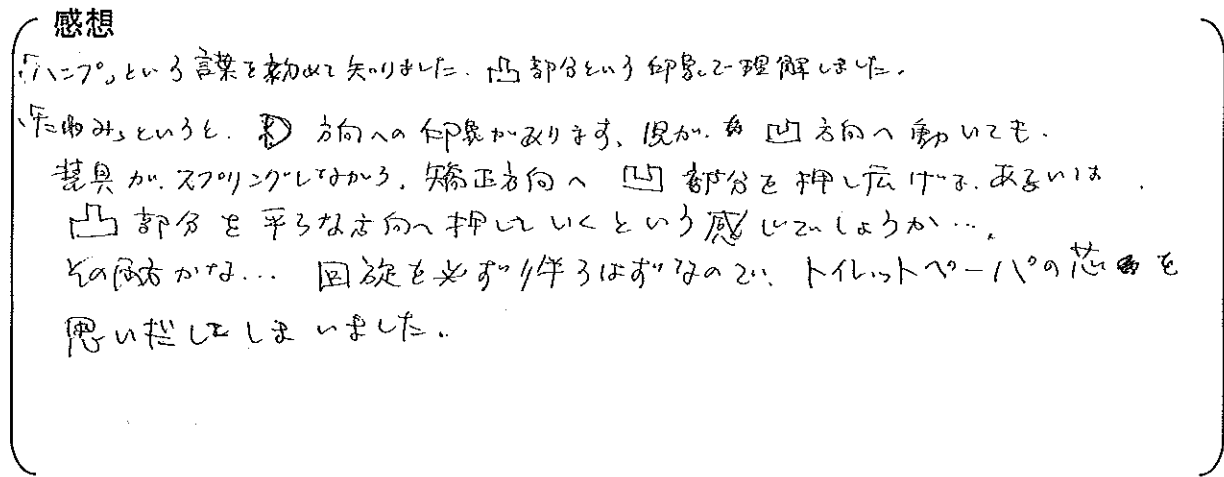 感想
「ハンプ」という言葉を初めて知りました。凸部分という印象で理解しました。
「たわみ」というと、 方向への印象があります、児が、凹方向へ動いても、
装具が、スプリングしながら、矯正方向へ凹部分を押し広げる、あるいは
凸部分を平らな方向へ押していくという感じでしょうか…。
その両方かな… 回旋を必ず伴うはずなので、トイレットペーパの芯を
思いだしてしまいました。